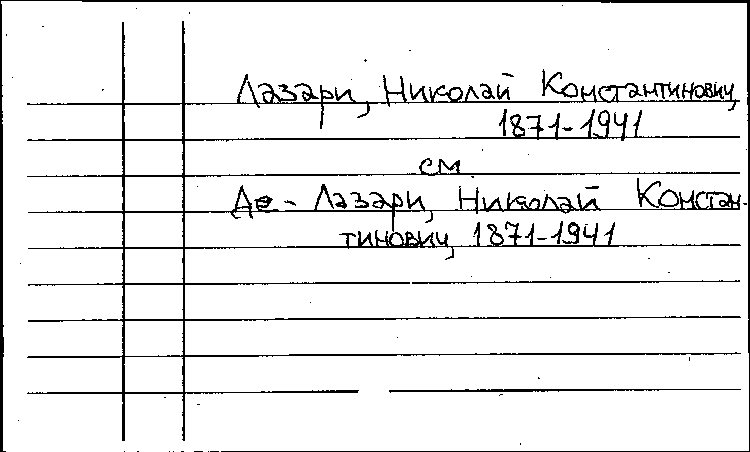 Лазари, Николай Константинович,
1871-1941
см.
Де-Лазари, Николай Констан-
тинович, 1871-1941